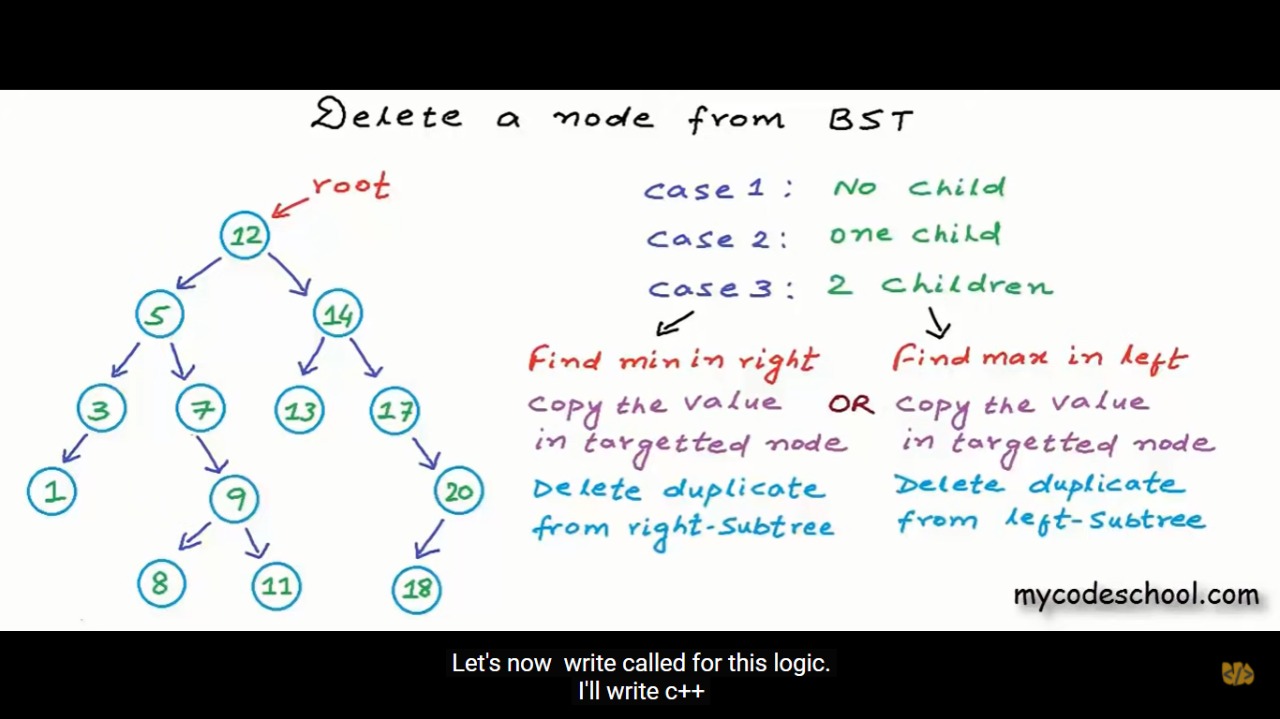 Delete a node from BST
root
12
5
14
3
7
13
17
1
9
20
8
11
18
case 1: No child
case 2: one child
case 3: 2 children
Find min in right
Copy the value
in targetted node
Delete duplicate
from right-Subtree
OR
Find max in left
Copy the value
in targetted node
Delete duplicate
from left-Subtree
mycodeschool.com
Let's now write called for this logic.
I'll write c++